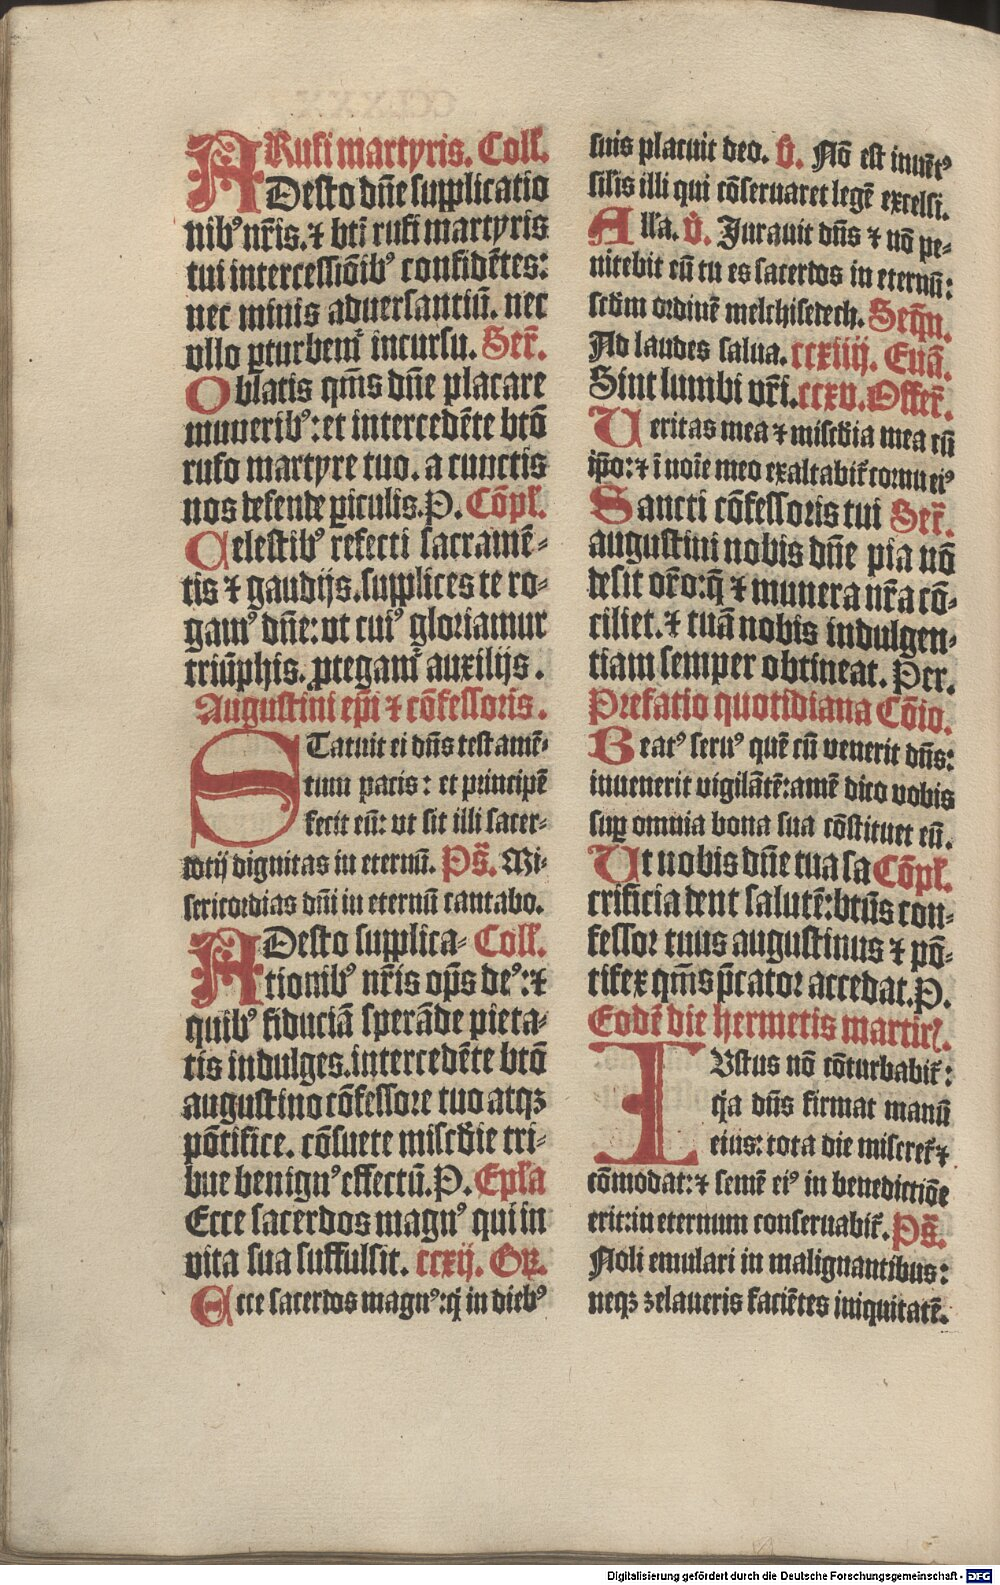 Rufi martyris. Coll̃.
ADesto dñe supplicatio
nibꝰ nr̃is. ⁊ bti̅ rufi martyris
tui intercessiōibꝰ confidētes:
nec minis aduersantiū. nec
vllo ꝑturbemᷣ incursu. Secr̃.
Oblatis qm̃s dñe placare
muneribꝰ: et intercedēte btō
rufo martyre tuo. a cunctis
nos defende ꝑiculis. P. Cōpl̃.
Celestibꝰ refecti sacramē-
tis ⁊ gaudijs. supplices te ro-
gamꝰ dñe: vt cuiꝰ gloriamur
triūphis. ꝓtegamᷣ auxilijs.
Augustini ep̄i ⁊ cōfessoris.
STatuit ei dñs testamē-
tum pacis: et principē
fecit eū: vt sit illi sacer-
dotij dignitas in eternū. Ps̄. Mi-
sericordias dñi in eternū cantabo.
ADesto supplica- Coll̃.
tionibꝰ nr̃is op̄s deꝰ: ⁊
quibꝰ fiduciā sperāde pieta-
tis indulges. intercedēte btō
augustino cōfessore tuo atqꝫ
pōtifice. cōsuete misc̄die tri-
bue benignꝰ effectū. P. Epl̃a
Ecce sacerdos magnꝰ qui in
vita sua suffulsit. ccxij. Gr̃.
Ecce sacerdos magnꝰ: q̄ in diebꝰ
suis placuit deo. V̄. Nō est inuētꝰ
silis illi qui cōseruaret legē excelsi.
Alla. V̄. Jurauit dñs ⁊ nō pe-
nitebit eū tu es sacerdos in eternū:
scdm ordinē melchisedech. Seq̄n.
Ad laudes salua. ccxiiij. Euā.
Sint lumbi vr̃i. ccxv. Offer̃.
Ueritas mea ⁊ misc̄dia mea cū
ip̄o: ⁊ ī noīe meo exaltabit̃ cornu eiꝰ
Sancti cōfessoris tui Secr̃.
augustini nobis dñe pia nō
desit or̄o: q̄ ⁊ munera nr̃a cō-
ciliet. ⁊ tuā nobis indulgen-
tiam semper obtineat. Per.
Prefatio quotidiana Cōio.
Beatꝰ seruꝰ quē cū venerit dñs:
inuenerit vigilātē: amē dico vobis
suꝑ omnia bona sua cōstituet eū.
Ut nobis dñe tua sa Cōpl̃.
crificia dent salutē: btūs con-
fessor tuus augustinus ⁊ pō-
tifex qm̃s p̄cator accedat. P.
Eodē die hermetis martir̃.
IUstus nō cōturbabit̃:
q̄a dñs firmat manū
eius: tota die miseret̃ ⁊
cōmodat: ⁊ semē eiꝰ in benedictiōe
erit: in eternum conseruabit̃. Ps̄.
Noli emulari in malignantibus:
neqꝫ zelaueris faciētes iniquitatē.
Digitalisierung gefördert durch die Deutsche Forschungsgemeinschaft - DFG